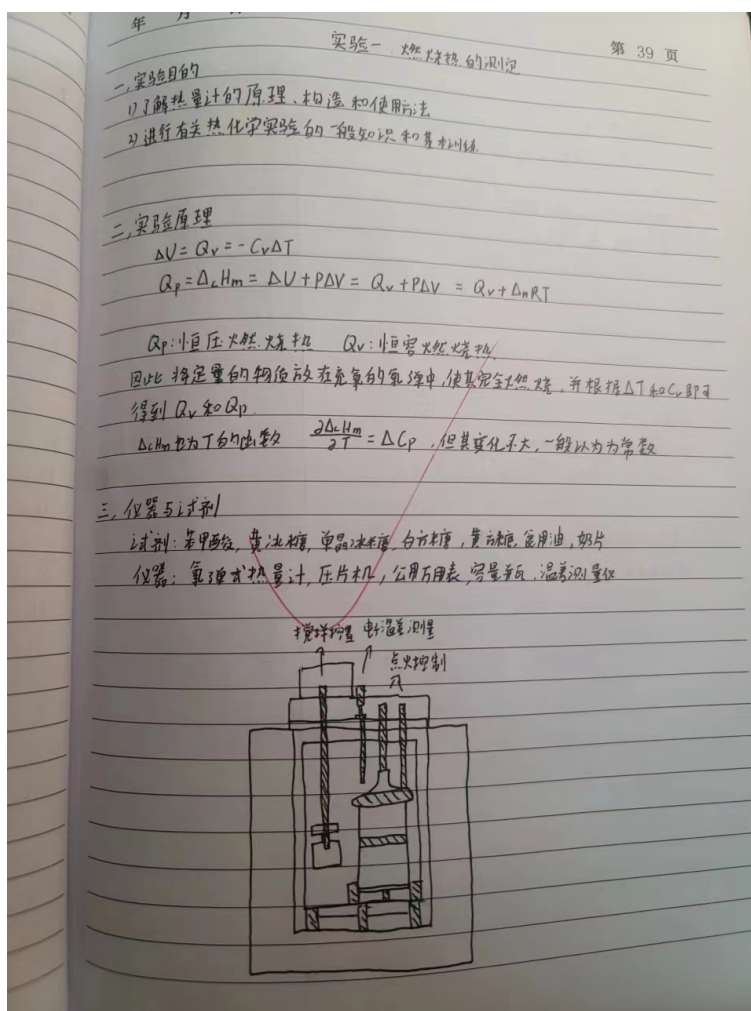 年 月
第 39 页
实验一 燃烧热的测定
一,实验目的
1)了解热量计的原理、构造和使用方法
2)进行有关热化学实验的一般知识和基本训练.
二,实验原理
ΔU = Qv = - CvΔT
Qp = ΔcHm = ΔU + PΔV = Qv + PΔV = Qv + ΔnRT
Qp:恒压燃烧热 Qv:恒容燃烧热
因此 将定量的物质放在充氧的氧弹中,使其完全燃烧,并根据ΔT和Cv即可
得到 Qv 和 Qp.
ΔcHm也为T的函数 ∂ΔcHm/∂T = ΔCp ,但其变化不大,一般认为为常数
三,仪器与试剂
试剂:苯甲酸,黄冰糖,单晶冰糖,白方糖,黄方糖,食用油,奶片
仪器:氧弹式热量计,压片机,公用万用表,容量瓶,温差测量仪
搅拌装置 电子温差测量
点火控制